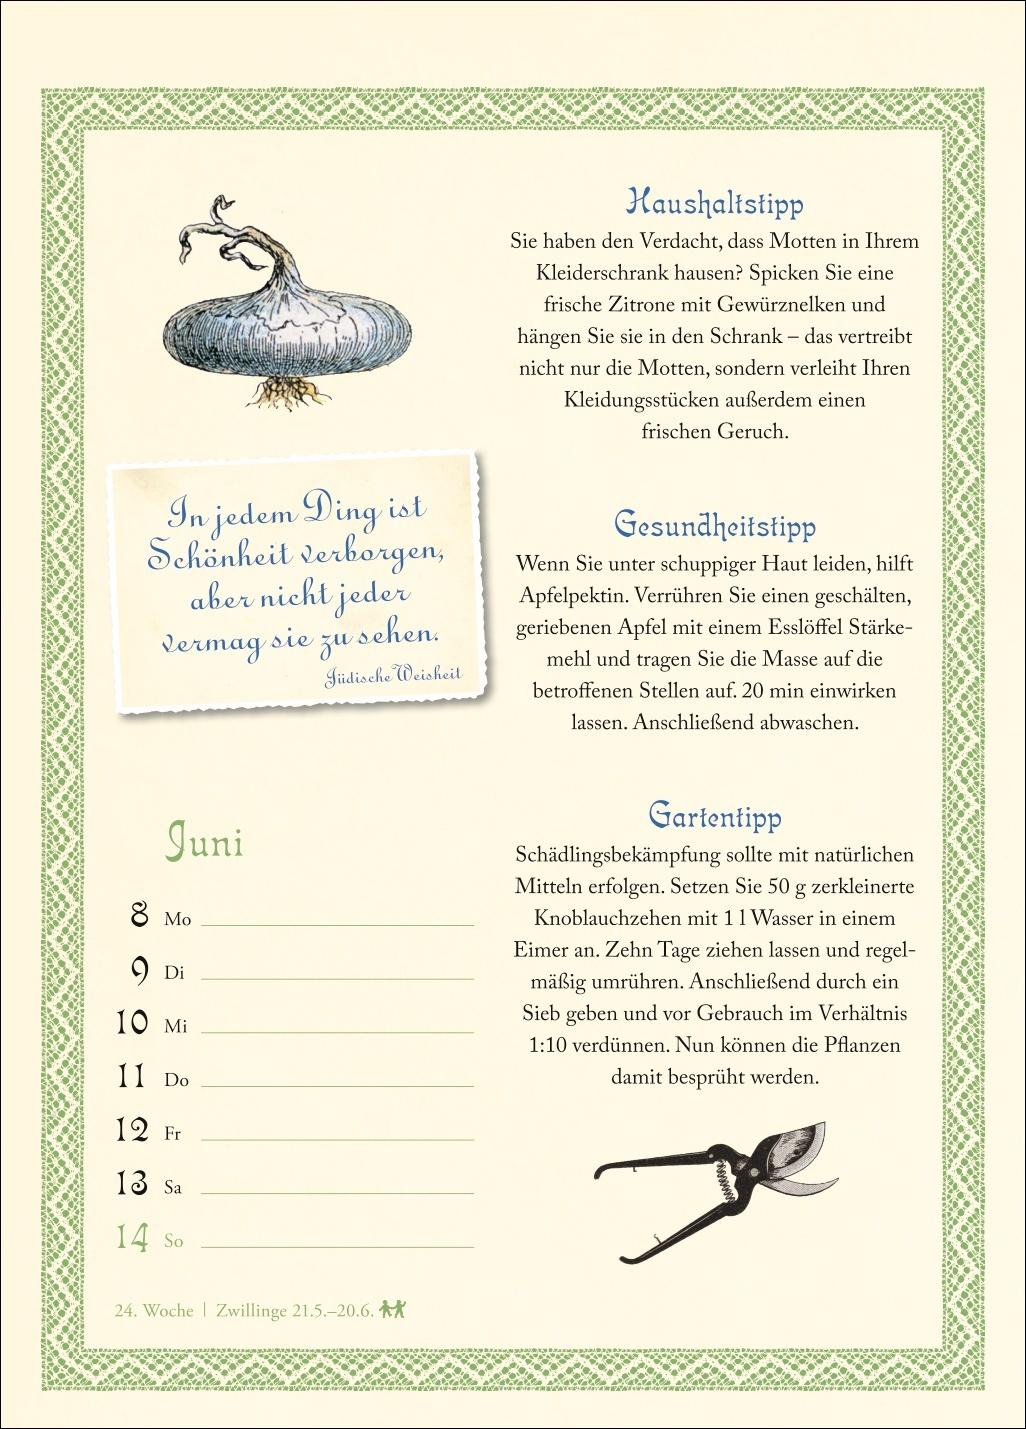 In jedem Ding ist
Schönheit verborgen,
aber nicht jeder
vermag sie zu sehen.
Jüdische Weisheit
Juni
8 Mo
9 Di
10 Mi
11 Do
12 Fr
13 Sa
14 So
24. Woche | Zwillinge 21.5.–20.6.
Haushaltstipp
Sie haben den Verdacht, dass Motten in Ihrem
Kleiderschrank hausen? Spicken Sie eine
frische Zitrone mit Gewürznelken und
hängen Sie sie in den Schrank – das vertreibt
nicht nur die Motten, sondern verleiht Ihren
Kleidungsstücken außerdem einen
frischen Geruch.
Gesundheitstipp
Wenn Sie unter schuppiger Haut leiden, hilft
Apfelpektin. Verrühren Sie einen geschälten,
geriebenen Apfel mit einem Esslöffel Stärke-
mehl und tragen Sie die Masse auf die
betroffenen Stellen auf. 20 min einwirken
lassen. Anschließend abwaschen.
Gartentipp
Schädlingsbekämpfung sollte mit natürlichen
Mitteln erfolgen. Setzen Sie 50 g zerkleinerte
Knoblauchzehen mit 1 l Wasser in einem
Eimer an. Zehn Tage ziehen lassen und regel-
mäßig umrühren. Anschließend durch ein
Sieb geben und vor Gebrauch im Verhältnis
1:10 verdünnen. Nun können die Pflanzen
damit besprüht werden.